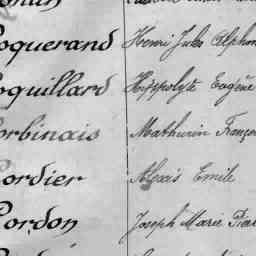 oquerand Henri Jules Alphon
oquillard Hyppolyte Eugène
orbinais Mathurin Franço
ordier Alexis Emile
ordon Joseph Marie